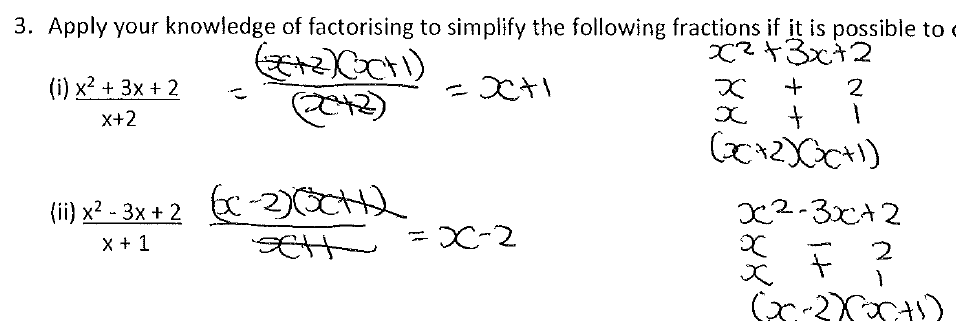 3. Apply your knowledge of factorising to simplify the following fractions if it is possible to
x²+3x+2
(i) x² + 3x + 2 = (x+2)(x+1) = x+1
x+2 (x+2)
x + 2
x + 1
(x+2)(x+1)
(ii) x² - 3x + 2 (x-2)(x+1) = x-2
x + 1 x+1
x²-3x+2
x - 2
x + 1
(x-2)(x+1)